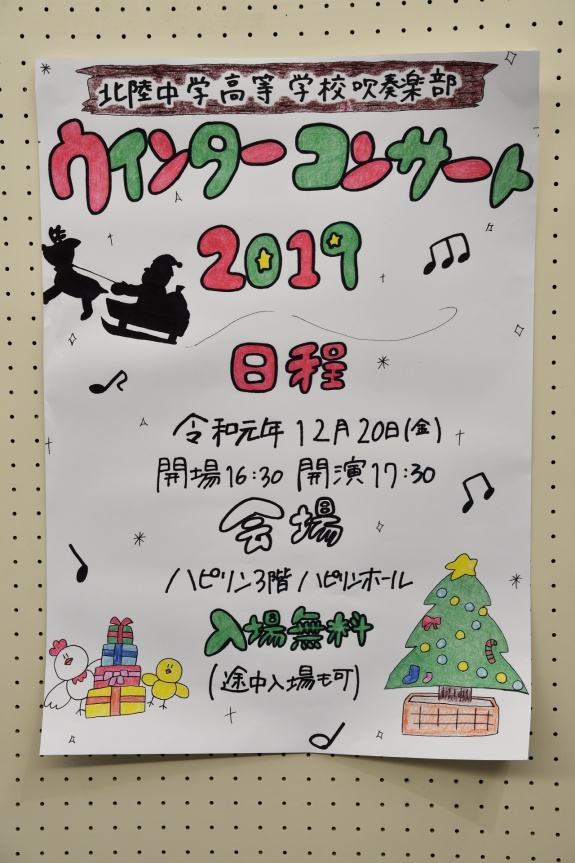 北陸中学高等学校吹奏楽部
ウインターコンサート
2019
日程
令和元年12月20日(金)
開場16:30 開演17:30
会場
ハピリン3階ハピリンホール
入場無料
(途中入場も可)